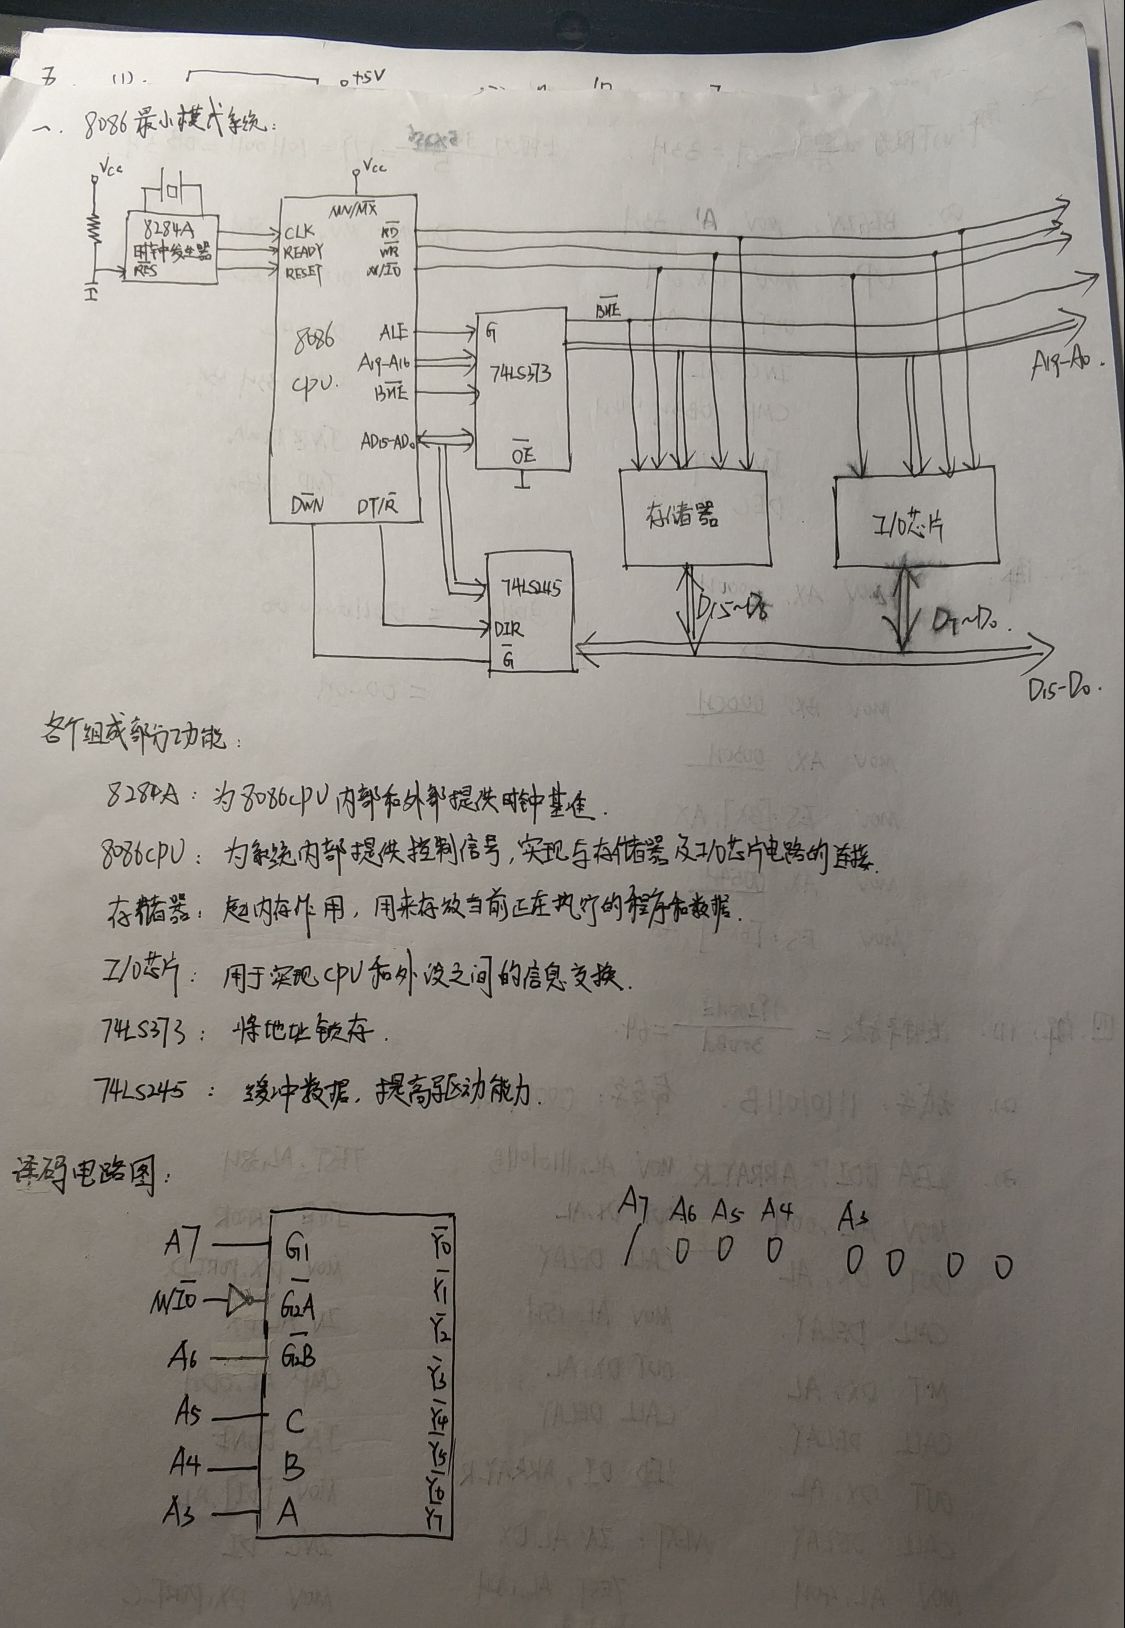 五. (1). +5V
一. 8086最小模式系统:
Vcc
Vcc
8284A
时钟发生器
RES
MN/MX
CLK
READY
RESET
RD
WR
M/IO
8086
CPU.
ALE
A19-A16
BHE
AD15-AD0
DEN DT/R
G
74LS373
OE
BHE
A19-A0.
存储器
I/O芯片
74LS245
DIR
G
D15~D8
D7~D0.
D15-D0.
各个组成部分功能:
8284A: 为8086CPU内部和外部提供时钟基准.
8086CPU: 为系统内部提供控制信号,实现与存储器及I/O芯片电路的连接.
存储器: 起内存作用, 用来存放当前正在执行的程序和数据.
I/O芯片: 用于实现CPU和外设之间的信息交换.
74LS373: 将地址锁存.
74LS245: 缓冲数据, 提高驱动能力.
译码电路图:
A7 G1 Y0
M/IO G2A Y1
Y2
A6 G2B Y3
A5 C Y4
Y5
A4 B Y6
A3 A Y7
A7 A6 A5 A4 A3
1 0 0 0 0 0 0 0